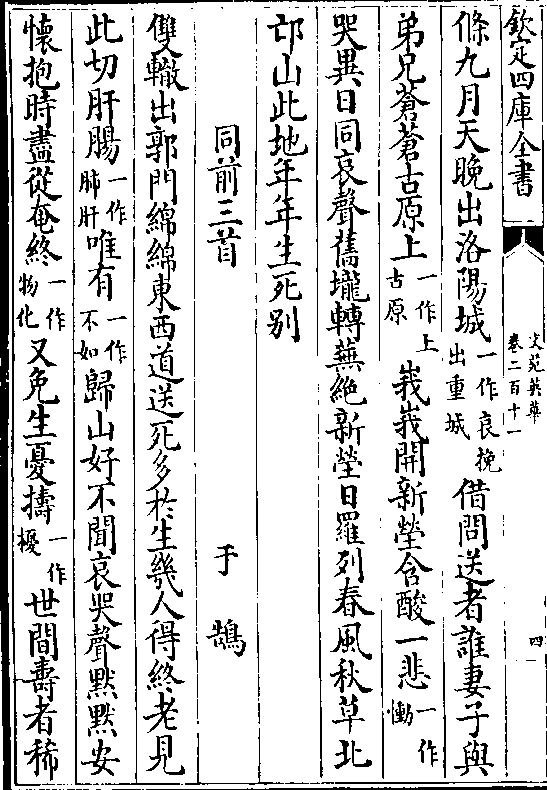 欽定四庫全書
文苑英華
卷二百十一
四
條九月天晚出洛陽城一作哀挽出重城借問送者誰妻子與
弟兄蒼蒼古原上一作上古原峩峩開新塋含酸一悲一作慟
哭異日同哀聲舊壠轉蕪絶新塋日羅列春風秋草北
邙山此地年年生死别
同前三首 于鵠
雙轍出郭門綿綿東西道送死多於生幾人得終老見
此切肝腸一作肺肝唯有一作不如歸山好不聞哀哭聲默默安
懷抱時盡從奄終一作物化又免生憂擣一作擾世間壽者稀